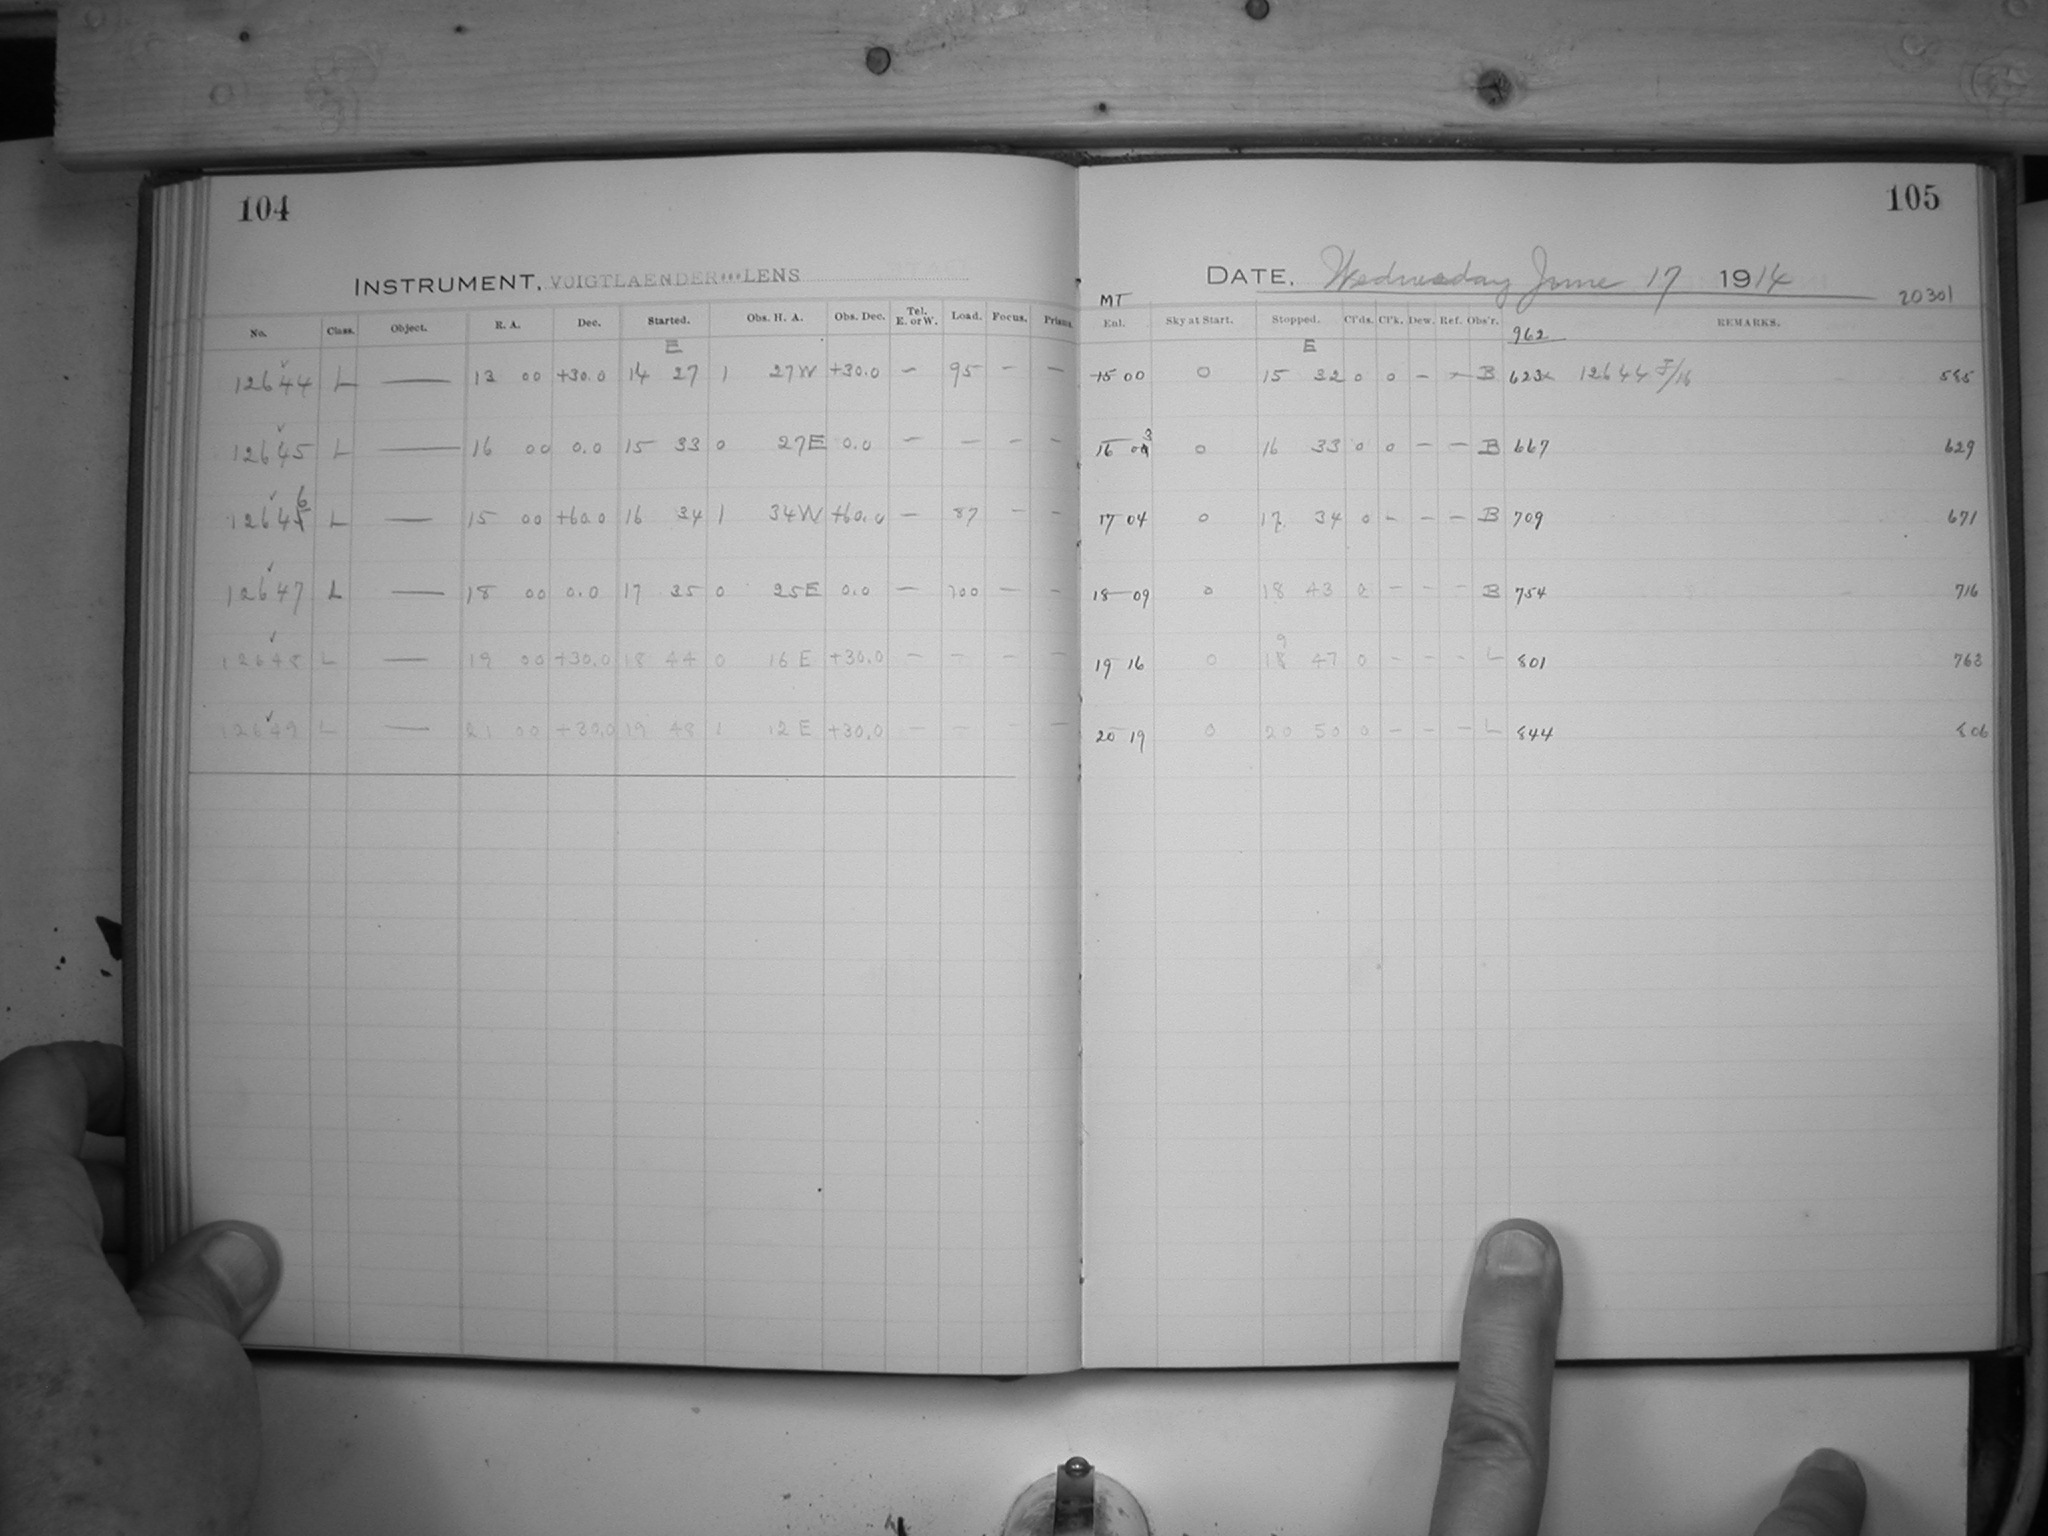 104
INSTRUMENT. VOIGTLAENDER LENS
No. Class. Object. R. A. Dec. Started. Obs. H. A. Obs. Dec. Tel. E. or W. Load. Focus. Prisms.
E
12644 L — 13 00 +30.0 14 27 1 27W +30.0 — 95 — —
12645 L — 16 00 0.0 15 33 0 27E 0.0 — — — —
12646 L — 15 00 +60.0 16 34 1 34W +60.0 — 87 — —
12647 L — 18 00 0.0 17 35 0 25E 0.0 — 100 — —
12648 L — 19 00 +30.0 18 44 0 16 E +30.0 — — — —
12649 L — 21 00 +30.0 19 48 1 12 E +30.0 — — — —
105
DATE. Wednesday June 17 1914
20301
MT
Enl. Sky at Start. Stopped. Cl'ds. Cl'k. Dew. Ref. Obs'r. REMARKS.
962
E
15 00 0 15 32 0 0 — — B 623 12644 F/16 585
16 03 0 16 33 0 0 — — B 667 629
17 04 0 17 34 0 — — — B 709 671
18 09 0 18 43 0 — — — B 754 716
19 16 0 19 47 0 — — — L 801 763
20 19 0 20 50 0 — — — L 844 806